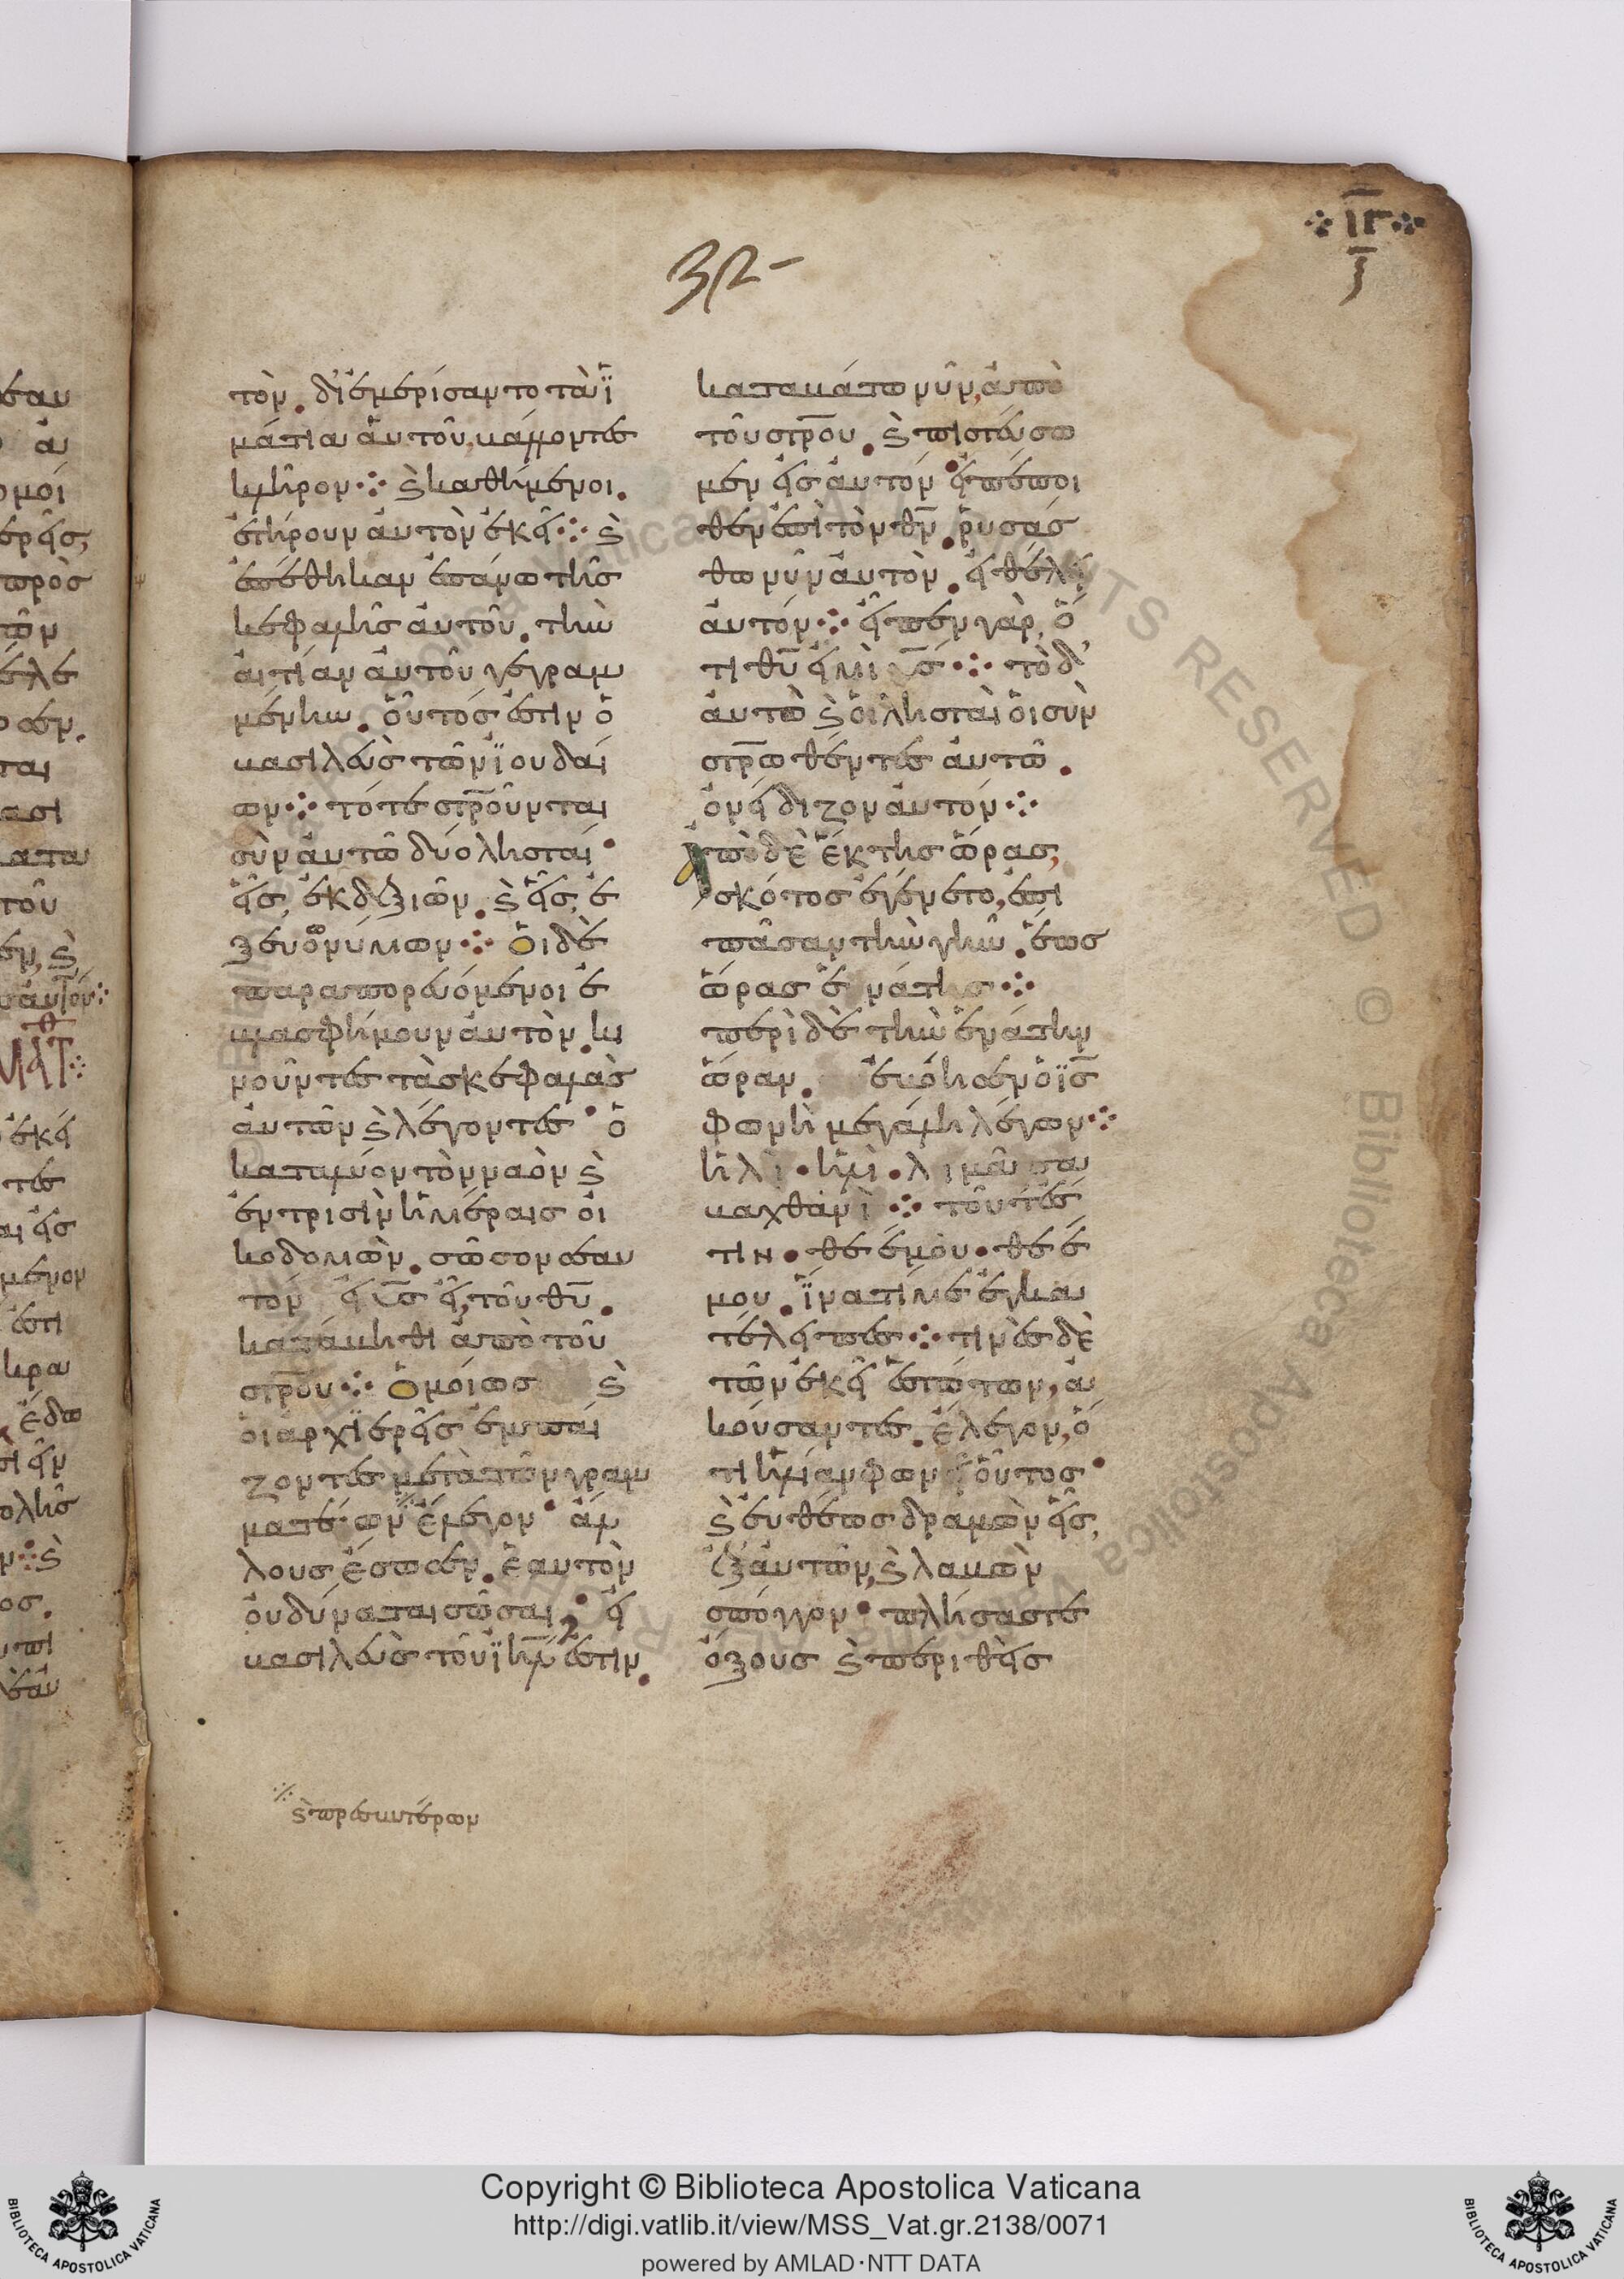 ·:· ΙΓ ·:·
ξ
32-
τὸν. διἐμερίσαντο τὰ ἵ
μάτια ἀυτοῦ, βάλλοντες
κλῆρον ⁘ ϗ καθήμενοι.
ἐτήρουν ἀυτὸν ἐκεῖ ⁘ ϗ
ἐπέθηκαν ἐπάνω τῆς
κεφαλῆς ἀυτοῦ. τὴν
ἀιτίαν ἀυτοῦ γεγραμ
μένην. ὅυτός ἐστιν ὁ
βασιλεὺς τῶν ϊουδαί
ων ⁘ τότε στρ̅οῦνται
σὺν ἀυτῶ δύο λησταί·
εἷς, ἐκ δεξιῶν. ϗ εἷς, ἐ
ξ ευὀνύμων ⁘ ὁι δὲ
παραπορευόμενοι ἐ
βλασφήμουν ἀυτὸν. κι
νοῦντες τὰς κεφαλὰς
ἀυτῶν ϗ λέγοντες· ὁ
καταλύον τὸν ναὸν ϗ
ἐν τρισὶν ἡμέραις ὀι
κοδομῶν. σῶσον σεαυ
τόν εἰ υ̅ς εἶ, τοῦ θυ̅.
κατάβηθι ἀπὸ τοῦ
στρ̅ου ⁘ Ὁμοίως ϗ
ὁι αρχϊερεῖς ἐμπαί
ζοντες μετὰ τῶν γραμ
ματέων ⁒ ἔλεγον· ἄλ
λους ἔσωσεν. ἑαυτὸν
ὀυ δύναται σῶσαι· εἰ
βασιλεὺς τοῦ ϊηλ̅ ἐστιν.
⁒ ϗ πρεσβυτέρων
καταβάτω νῦν, ἀπὸ
τοῦ στρ̅ου. ϗ πιστεύσω
μεν εἰς ἀυτόν· εἰ πέποι
θεν ἐπὶ τὸν θν̅. ῥυσάσ
θω νῦν ἀυτὸν. εἰ θέλει
ἀυτόν ⁘ εἶπεν γὰρ, ὅ
τι θυ̅ εἰμὶ υ̅ς ⁘ τὸ δ’
ἀυτὸ ϗ ὁι λησταὶ ὁι σὺν
στρ̅ωθέντες ἀυτῶ.
ὀνείδιζον ἀυτόν ⁘
Ἀπὸ δὲ ἕκτης ὥρας,
σκότος ἐγένετο, ἐπὶ
πᾶσαν τὴν γῆν. ἕως
ὥρας ἐνάτης ⁘
περὶ δὲ τὴν ἐνάτην
ὥραν. ἐβόησεν ὁ ϊ̅ς
φωνῆ μεγάλη λέγων ⁘
ἡλὶ· ἡλὶ· λιμᾶ σα
βαχθανὶ ⁘ τοῦτ’ ἐσ
τιν· θεέ μου· θεέ
μου. ϊνατί με ἐγκα
τέλειπες ⁘ τινὲς δὲ
τῶν ἐκεῖ ἑστώτων, ἀ
κούσαντες. ἔλεγον, ὅ
τι ἡλίαν φωνεῖ ὅυτος·
ϗ ἐυθέως δραμὼν εἷς,
ἐξ ἀυτῶν, ϗ λαβὼν
σπόγγον· πλήσας τε
ὄξους ϗ περιθεὶς
Copyright © Biblioteca Apostolica Vaticana
http://digi.vatlib.it/view/MSS_Vat.gr.2138/0071
powered by AMLAD·NTT DATA